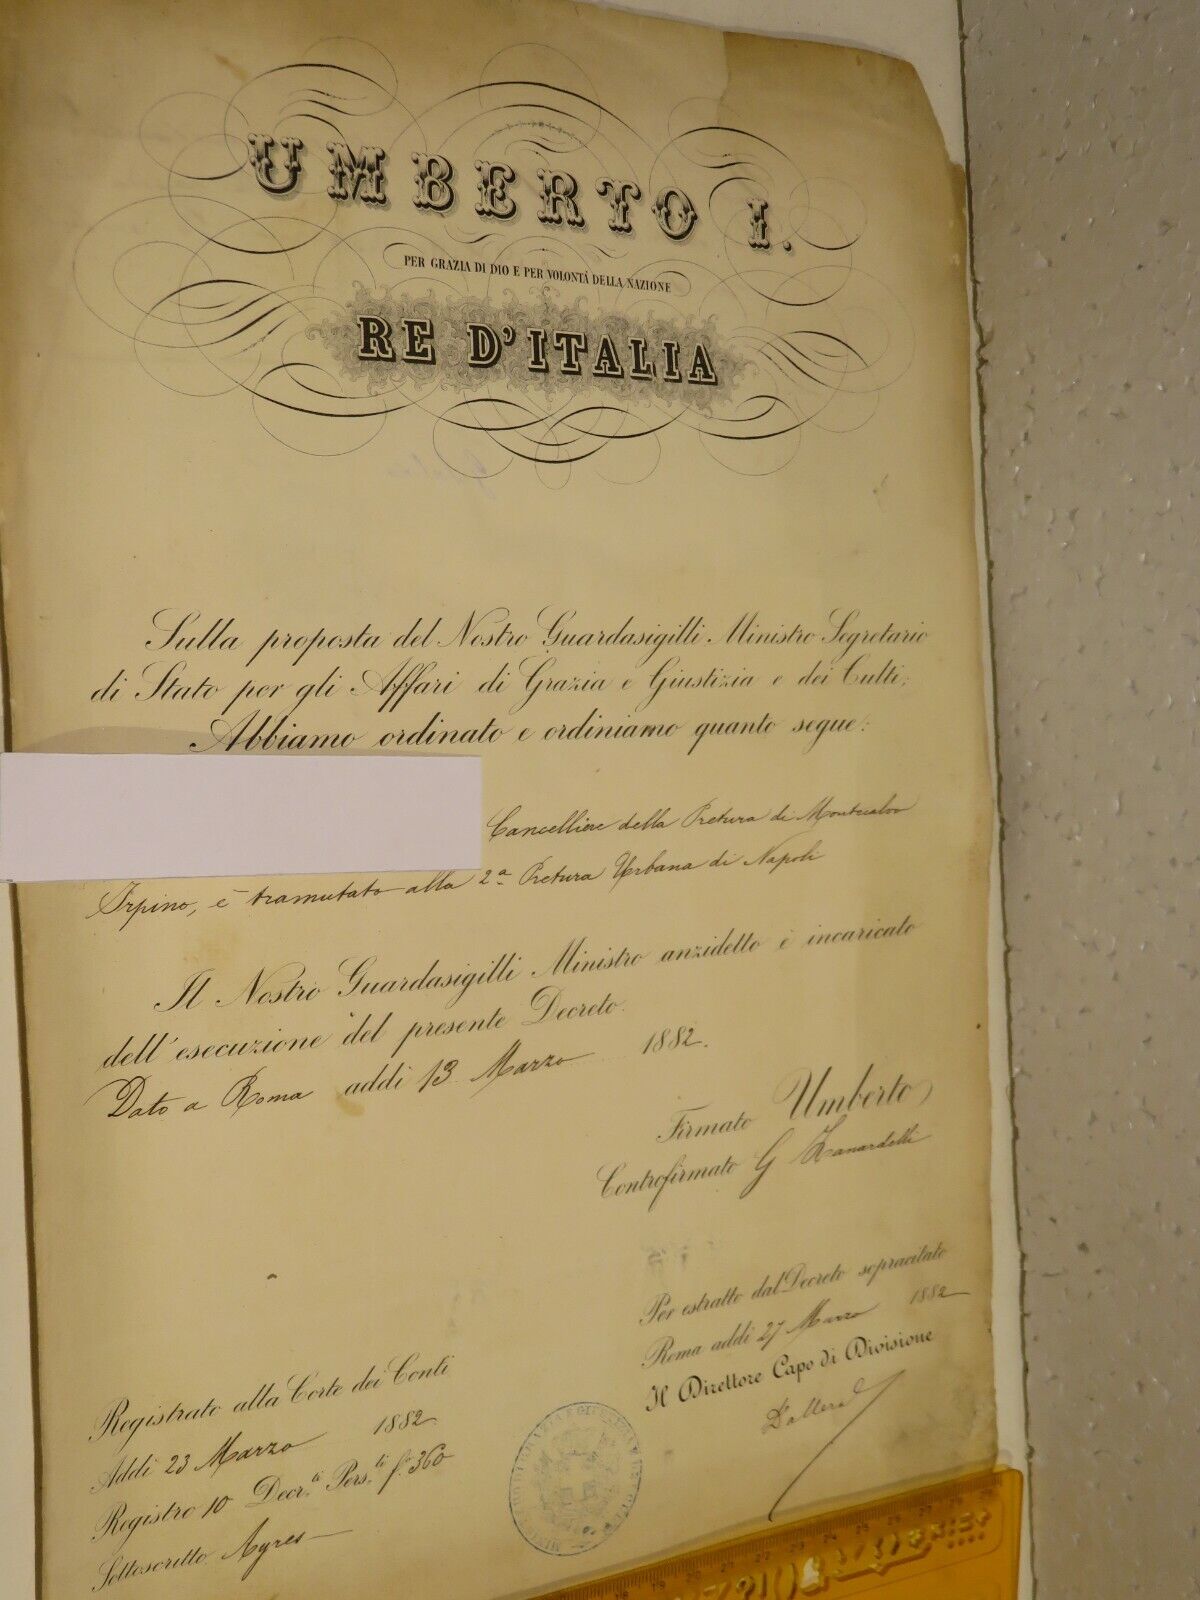 UMBERTO I.
PER GRAZIA DI DIO E PER VOLONTÀ DELLA NAZIONE
RE D'ITALIA
Sulla proposta del Nostro Guardasigilli Ministro Segretario
di Stato per gli Affari di Grazia e Giustizia e dei Culti;
Abbiamo ordinato e ordiniamo quanto segue:
Cancelliere della Pretura di Montecalvo
Irpino, è tramutato alla 2ª Pretura Urbana di Napoli
Il Nostro Guardasigilli Ministro anzidetto è incaricato
dell'esecuzione del presente Decreto.
Dato a Roma addì 13 Marzo 1882.
Firmato Umberto
Controfirmato G Zanardelli
Per estratto dal Decreto sopracitato
Roma addì 27 Marzo 1882
Il Direttore Capo di Divisione
Registrato alla Corte dei Conti
Addì 23 Marzo 1882
Registro 10 Decr.ti Pers.li f.º 360
Sottoscritto Ayres